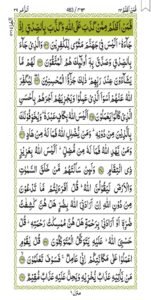 فَمَنْ أَظْلَمُ مِمَّنْ كَذَبَ عَلَى اللّٰهِ وَكَذَّبَ بِالصِّدْقِ إِذْ
جَآءَهٗ ؕ أَلَيْسَ فِيْ جَهَنَّمَ مَثْوًى لِّلْكٰفِرِيْنَ وَالَّذِيْ جَآءَ
بِالصِّدْقِ وَصَدَّقَ بِهٖٓ أُولٰٓئِكَ هُمُ الْمُتَّقُوْنَ لَهُمْ مَّا
يَشَآءُوْنَ عِنْدَ رَبِّهِمْ ؕ ذٰلِكَ جَزٰٓؤُا الْمُحْسِنِيْنَ لِيُكَفِّرَ
اللّٰهُ عَنْهُمْ أَسْوَأَ الَّذِيْ عَمِلُوْا وَيَجْزِيَهُمْ أَجْرَهُمْ بِأَحْسَنِ
الَّذِيْ كَانُوْا يَعْمَلُوْنَ أَلَيْسَ اللّٰهُ بِكَافٍ عَبْدَهٗ ؕ وَيُخَوِّفُوْنَكَ
بِالَّذِيْنَ مِنْ دُوْنِهٖ ؕ وَمَنْ يُّضْلِلِ اللّٰهُ فَمَا لَهٗ مِنْ هَادٍ
وَمَنْ يَّهْدِ اللّٰهُ فَمَا لَهٗ مِنْ مُّضِلٍّ ؕ أَلَيْسَ اللّٰهُ بِعَزِيْزٍ
ذِي انْتِقَامٍ وَلَئِنْ سَأَلْتَهُمْ مَّنْ خَلَقَ السَّمٰوٰتِ
وَالْأَرْضَ لَيَقُوْلُنَّ اللّٰهُ ؕ قُلْ أَفَرَءَيْتُمْ مَّا تَدْعُوْنَ مِنْ
دُوْنِ اللّٰهِ إِنْ أَرَادَنِيَ اللّٰهُ بِضُرٍّ هَلْ هُنَّ كٰشِفٰتُ
ضُرِّهٖٓ أَوْ أَرَادَنِيْ بِرَحْمَةٍ هَلْ هُنَّ مُمْسِكٰتُ رَحْمَتِهٖ ؕ قُلْ
حَسْبِيَ اللّٰهُ ؕ عَلَيْهِ يَتَوَكَّلُ الْمُتَوَكِّلُوْنَ قُلْ يٰقَوْمِ
اعْمَلُوْا عَلٰى مَكَانَتِكُمْ إِنِّيْ عَامِلٌ ۚ فَسَوْفَ تَعْلَمُوْنَ
مَنْ يَّأْتِيْهِ عَذَابٌ يُّخْزِيْهِ وَيَحِلُّ عَلَيْهِ عَذَابٌ مُّقِيْمٌ